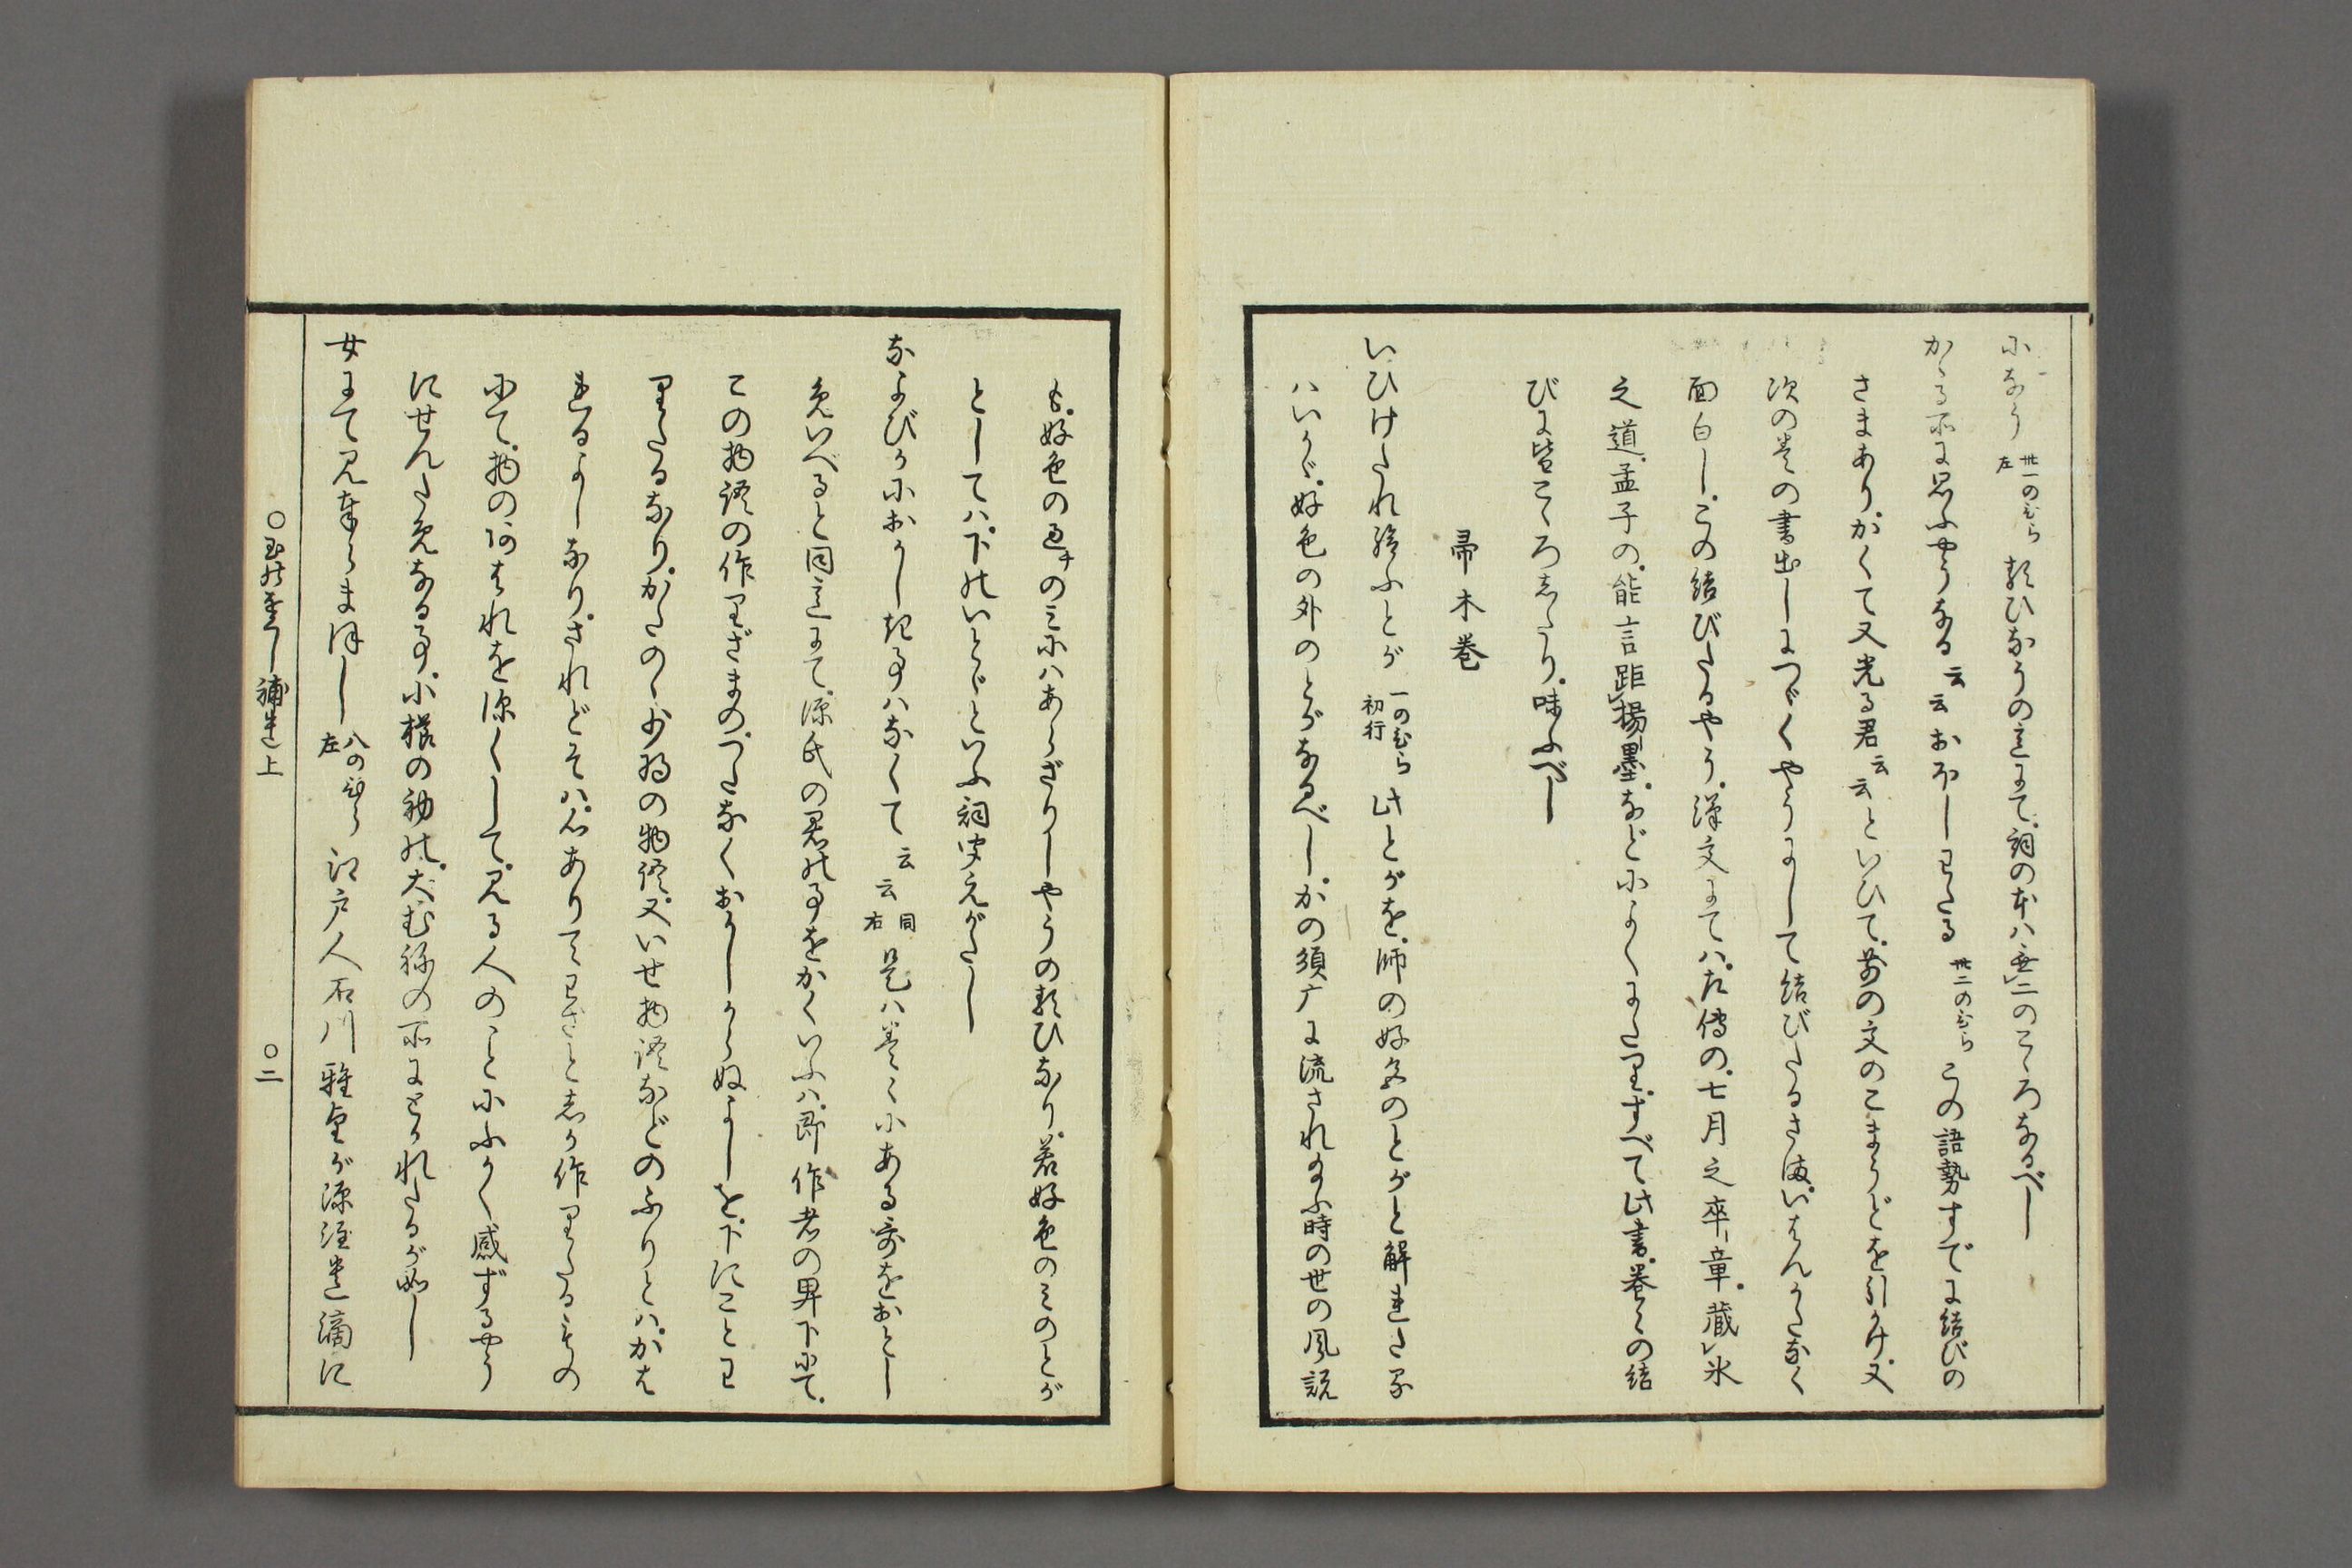 になう 卅一のひら左 類ひなうの意にて、詞の本ハ無二のこゝろなるべし
かゝる所に思ふやうなる云云おぼしわたる 卅二のひら この語勢すでに結びの
さまあり。かくて又光る君云云といひて、前の文のこまうどを引かけ、又
次の巻の書出しにつゞくやうにして結びたるさま、いはんかたなく
面白し。この結びたるやう、漢文にてハ、左傳の、七月之卒章、藏氷
之道、孟子の、能言距揚墨、などによくにたり。すべて此書、巻々の結
びに皆こゝろしたり。味ふべし
帚木巻
いひけたれ給ふとが 一のひら初行 此とがを、師の好色のとがと解れたる
ハいかゞ。好色の外のとがなるべし。かの須广に流され給ふ時の世の風説
も、好色の過チのミにハあらざりしやうの類ひなり。若好色のミのとが
としてハ、下のいとゞといふ詞聞えがたし
なよびかにおかしき事ハなくて云云 同右 是ハ巻々にある哥をおとし
めいへると同意にて、源氏の君の事をかくいふハ、即作者の卑下にて、
この物語の作りざまのつたなくおかしからぬよしを、下にことわ
りたるなり。かたのゝ少将の物語、又いせ物語などのふりとハ、かは
れるよしなり。されどそハ、心ありてわざとしか作りたるもの
にて、物のあはれを深くして、見る人のことにふかく感ずるやう
にせんためなる事、小櫛の初の、大むねの所にとかれたるが如し
女にて見奉らまほし 八のひら左 江戸人石川雅望が源註遺滴に
○玉の小櫛補遺上　○二